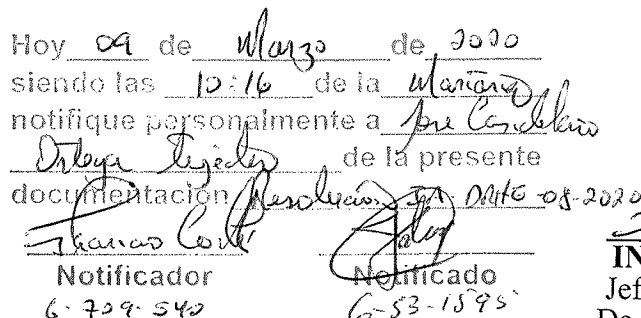 Hoy 09 de Marzo de 2020
siendo las 10:16 de la Mañana
notifique personalmente a José Candelario
Ortega Tejedor de la presente
documentación Resolución IA-DRHE-08-2020
Notificador Notificado
6-709-540 6-53-1595
IN
Jef
De